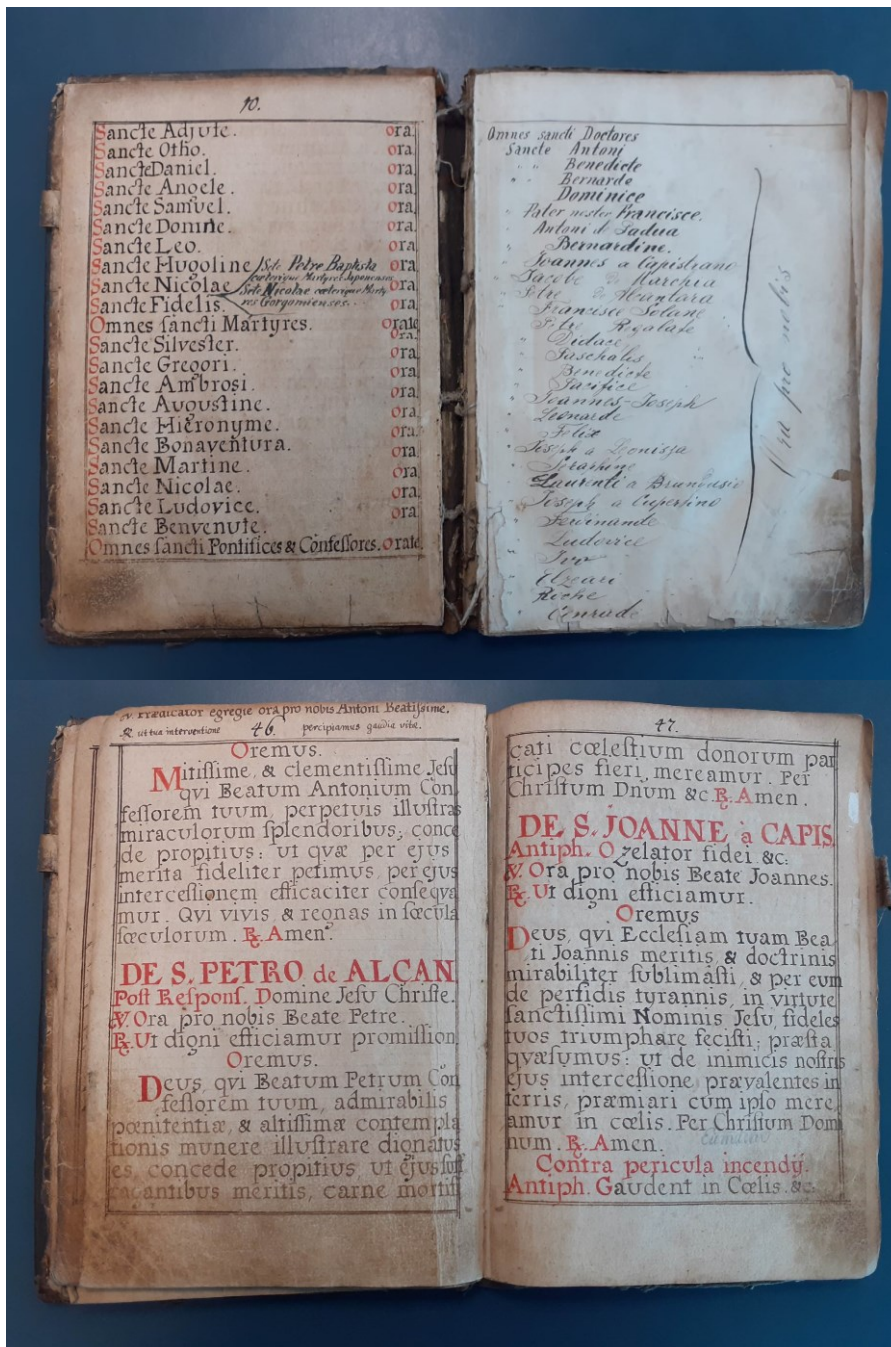 10.
Sancte Adjute. ora
Sancte Otho. ora
Sancte Daniel. ora
Sancte Angele. ora
Sancte Samuel. ora
Sancte Domne. ora
Sancte Leo. ora
Sancte Hugoline ora
Sancte Nicolae ora
Sancte Fidelis. ora
Sctē Petre Baptista
cæterique Martyres Japonenses
Sctē Nicolae cæterique Marty-
res Gorgomienses.
Omnes ſancti Martyres. orate
Sancte Silvester. ora
Sancte Gregori. ora
Sancte Ambrosi. ora
Sancte Augustine. ora
Sancte Hieronyme. ora
Sancte Bonaventura. ora
Sancte Martine. ora
Sancte Nicolae. ora
Sancte Ludovice. ora
Sancte Benvenute. ora
Omnes ſancti Pontifices & Confeſſores. orate
Omnes sancti Doctores
Sancte Antoni
" " Benedicte
" " Bernarde
Dominice
" Pater noster Francisce.
Antoni d Padua
" Bernardine.
Joannes a Capistrano
Jacobe de Marchia
Petre de Alcantara
Francisce Solane
Petre Regalate
" Didace
" Paschalis
" Benedicte
" Pacifice
" Joannes-Joseph
Leonarde
" Felix
" Joseph a Leonissa
" Seraphine
Laurenti a Brundusio
" Joseph a Cupertino
" Ferdinande
" Ludovice
" Ivo
" Elzeari
Roche
" Conrade
Ora pro nobis
℣. Prædicator egregie ora pro nobis Antoni Beatiſsime.
℟. ut tua interventione 46. percipiamus gaudia vitæ.
Oremus.
Mitiſſime, & clementiſſime Jeſu
qvi Beatum Antonium Con
feſſorem tuum, perpetuis illuſtras
miraculorum ſplendoribus; conce
de propitius: ut qvæ per ejus
merita fideliter petimus, per ejus
interceſſionem efficaciter conſeqva
mur. Qvi vivis, & regnas in ſœcula
ſœculorum. ℟. Amen.
DE S. PETRO de ALCAN
Poſt Reſponſ. Domine Jeſu Chriſte.
℣. Ora pro nobis Beate Petre.
℟. Ut digni efficiamur promiſſion
Oremus.
Deus, qvi Beatum Petrum Con
feſſorem tuum, admirabilis
pœnitentiæ, & altiſſimæ contempla
tionis munere illuſtrare dignatus
es, concede propitius, ut ejus ſuff
ragantibus meritis, carne mortifi
47.
cati cœleſtium donorum par
ticipes fieri, mereamur. Per
Chriſtum Dnum &c. ℟. Amen.
DE S. JOANNE à CAPIS.
Antiph. O zelator fidei &c:
℣. Ora pro nobis Beate Joannes.
℟. Ut digni efficiamur.
Oremus
Deus, qvi Eccleſiam tuam Bea
ti Joannis meritis, & doctrinis
mirabiliter ſublimaſti, & per eum
de perfidis tyrannis, in virtute
ſanctiſſimi Nominis Jeſu, fideles
tuos triumphare feciſti; præſta
qvæſumus: ut de inimicis noſtris
ejus interceſſione, prævalentes in
terris, præmiari cum ipſo mere
amur in cœlis. Per Chriſtum Dom
num. ℟. Amen.
Contra pericula incendij.
Antiph. Gaudent in Cœlis. &c.